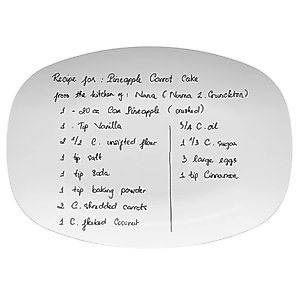 Recipe for: Pineapple Carrot Cake
from the kitchen of: Nana (Norma L. Crunckton)
1 - 20 oz Can Pineapple (crushed)
1 - Tip Vanilla
2 1/2 C. unsifted flour
1 tip salt
1 tip Soda
1 tip baking powder
2 C. shredded carrots
1 C. flaked Coconut
3/4 C. oil
1 1/3 C. sugar
3 large eggs
1 tip Cinnamon